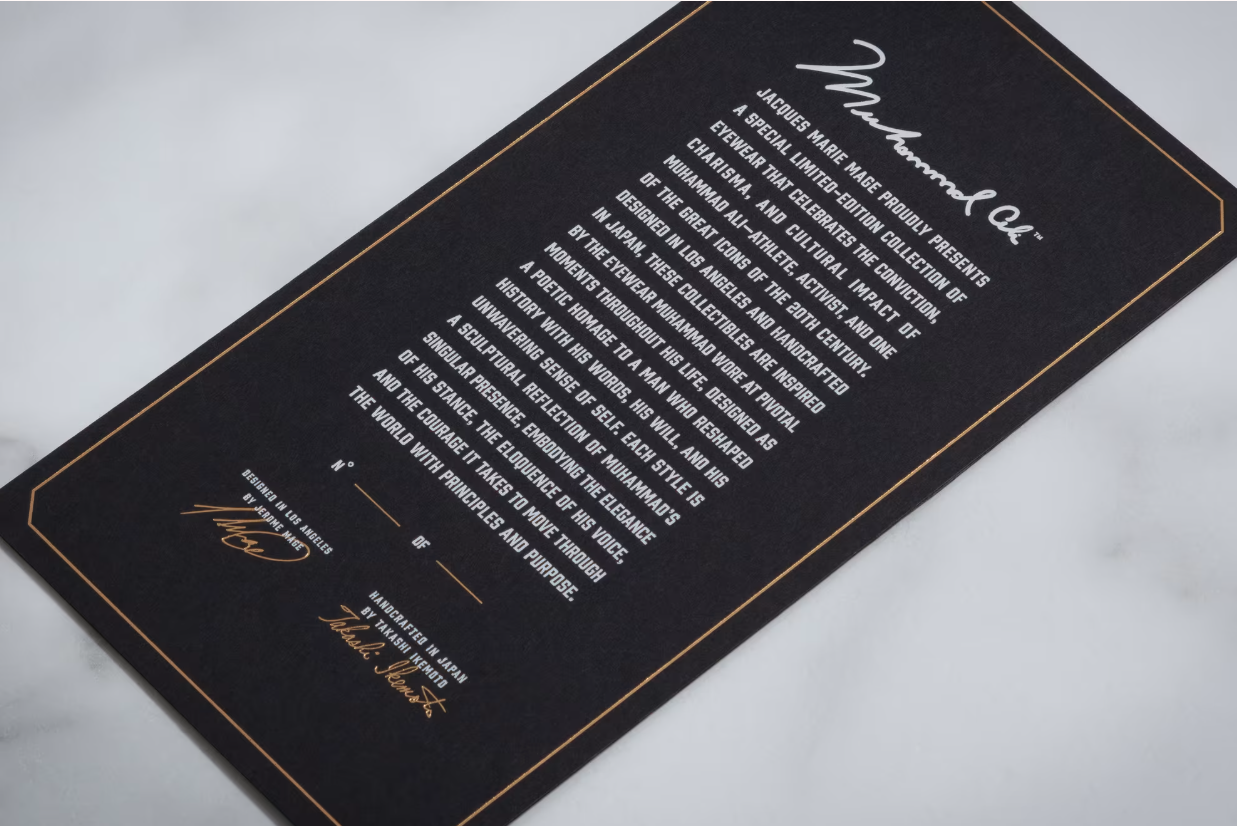 Muhammad Ali™
JACQUES MARIE MAGE PROUDLY PRESENTS
A SPECIAL LIMITED-EDITION COLLECTION OF
EYEWEAR THAT CELEBRATES THE CONVICTION,
CHARISMA, AND CULTURAL IMPACT OF
MUHAMMAD ALI—ATHLETE, ACTIVIST, AND ONE
OF THE GREAT ICONS OF THE 20TH CENTURY.
DESIGNED IN LOS ANGELES AND HANDCRAFTED
IN JAPAN, THESE COLLECTIBLES ARE INSPIRED
BY THE EYEWEAR MUHAMMAD WORE AT PIVOTAL
MOMENTS THROUGHOUT HIS LIFE, DESIGNED AS
A POETIC HOMAGE TO A MAN WHO RESHAPED
HISTORY WITH HIS WORDS, HIS WILL, AND HIS
UNWAVERING SENSE OF SELF. EACH STYLE IS
A SCULPTURAL REFLECTION OF MUHAMMAD'S
SINGULAR PRESENCE, EMBODYING THE ELEGANCE
OF HIS STANCE, THE ELOQUENCE OF HIS VOICE,
AND THE COURAGE IT TAKES TO MOVE THROUGH
THE WORLD WITH PRINCIPLES AND PURPOSE.
N° OF
DESIGNED IN LOS ANGELES
BY JEROME MAGE
HANDCRAFTED IN JAPAN
BY TAKASHI IKEMOTO
Takashi Ikemoto